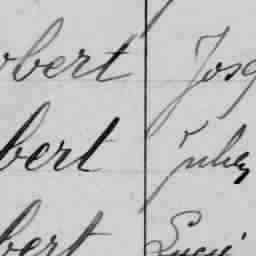 obert Jos
bert Jules
bert Luci